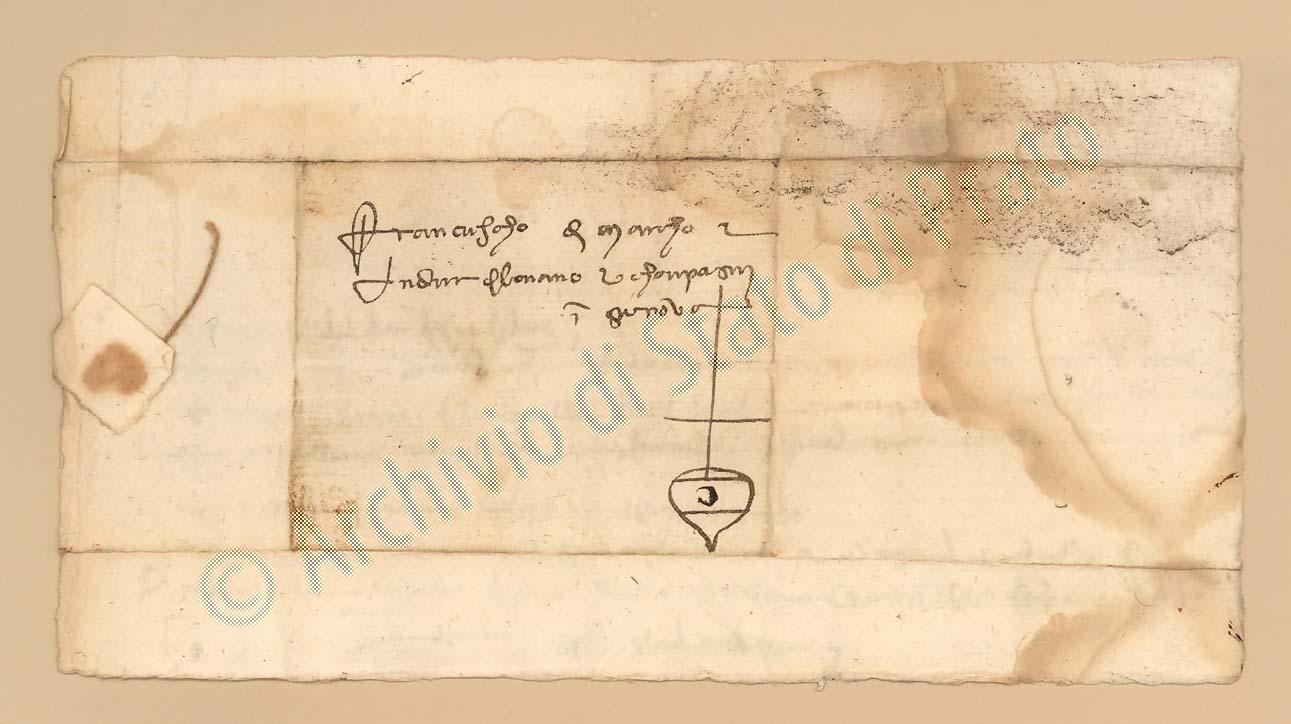 Franciescho di Marcho e
Andrea di Bonanno e chonpagni
in Genova
© Archivio di Stato di Prato